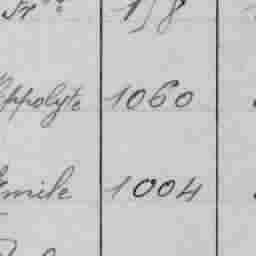 Hippolyte 1060
Emile 1004